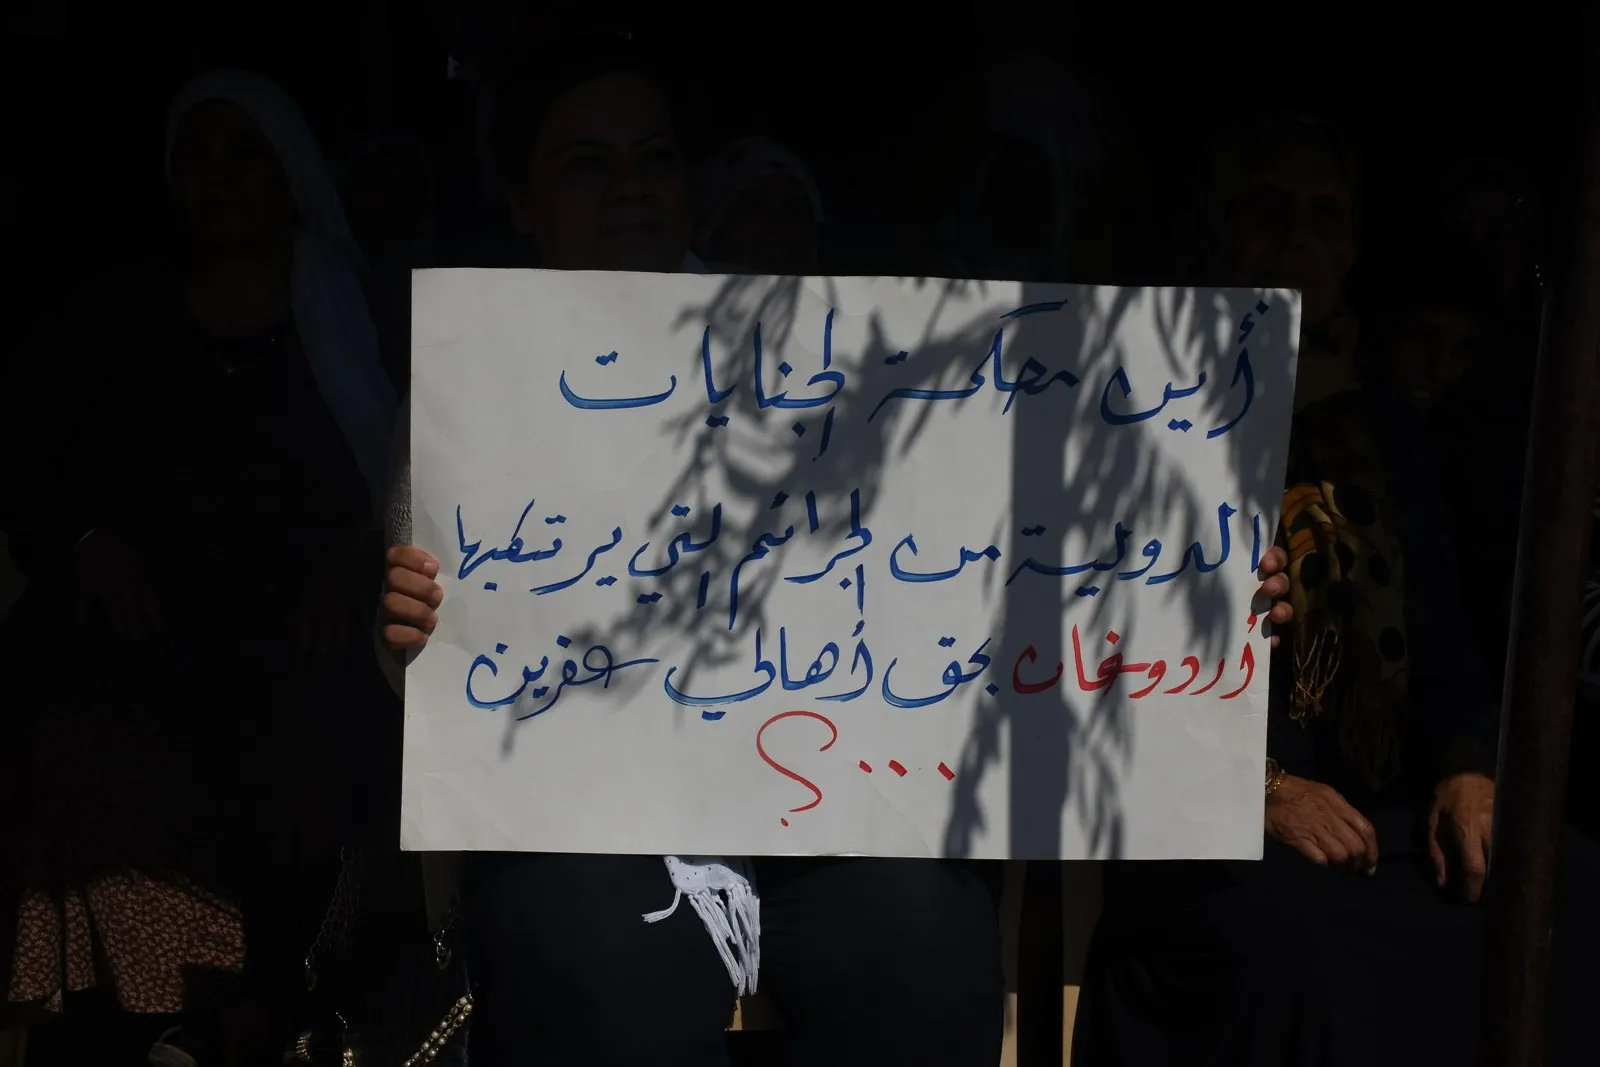 أين محكمة الجنايات
الدولية من الجرائم التي يرتكبها
أردوغان بحق أهالي عفرين
...؟